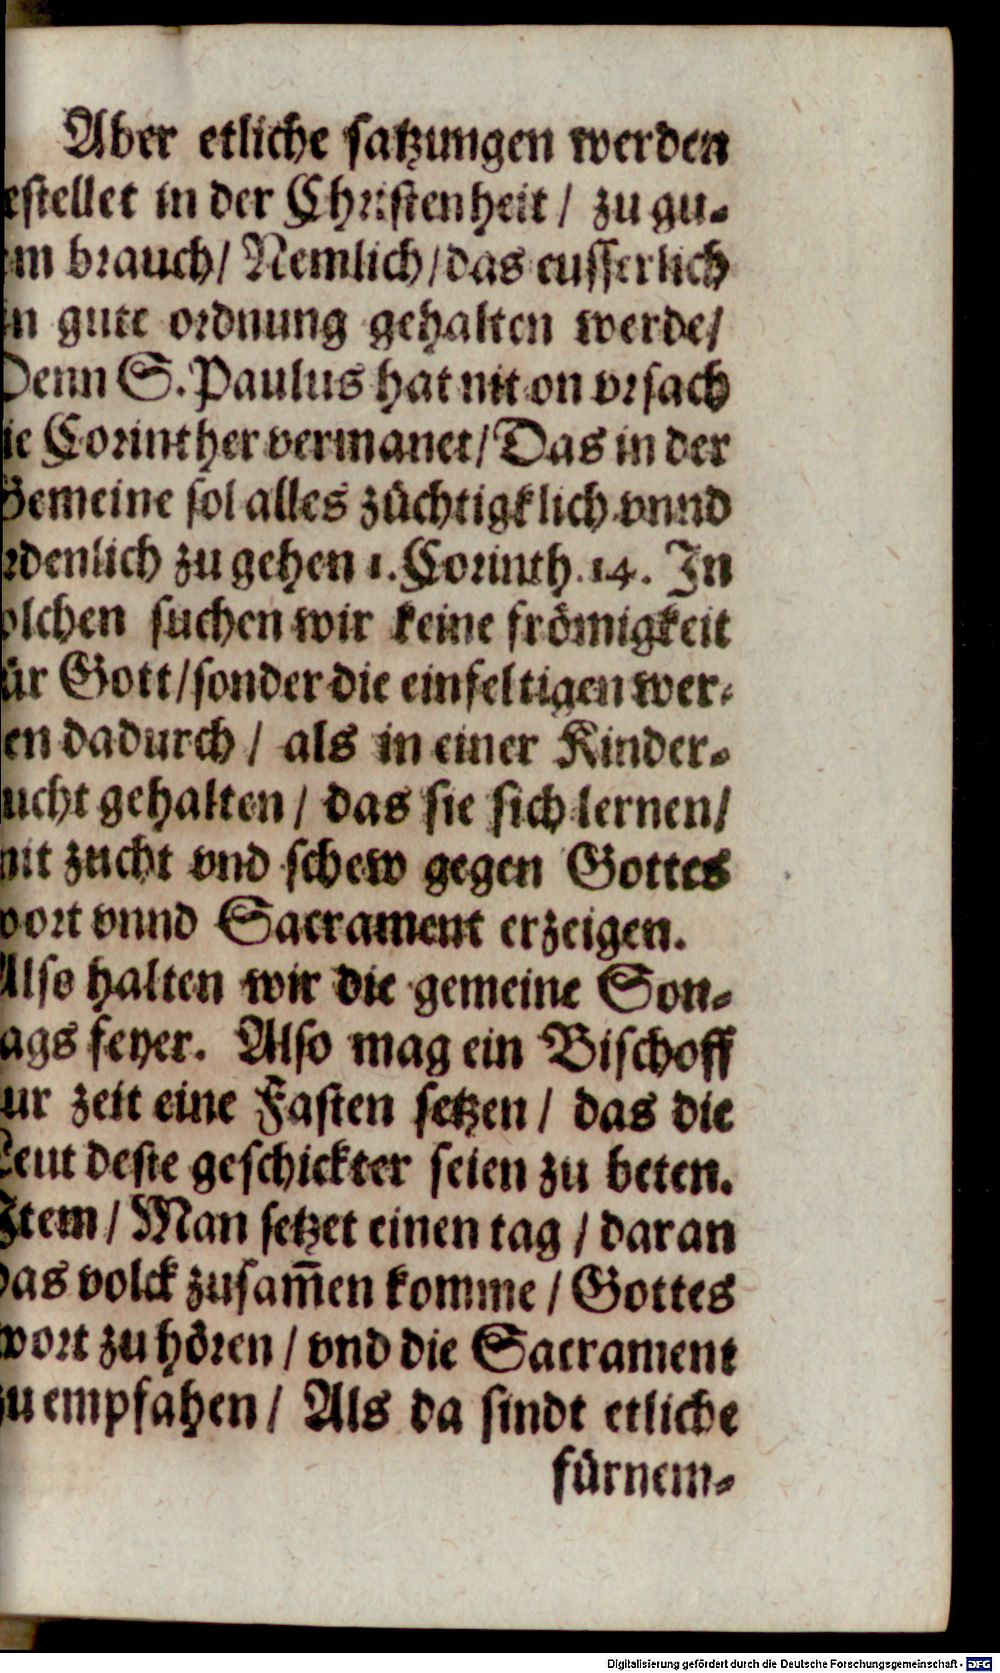 Aber etliche satzungen werden
estellet in der Christenheit / zu gu⸗
em brauch/ Nemlich/das eusserlich
in gute ordnung gehalten werde/
Denn S. Paulus hat nit on vrsach
ie Corinther vermanet/Das in der
Gemeine sol alles züchtigklich vnnd
rdenlich zu gehen 1. Corinth. 14. In
olchen suchen wir keine frömigkeit
ür Gott/sonder die einfeltigen wer⸗
en dadurch / als in einer Kinder⸗
ucht gehalten / das sie sich lernen/
mit zucht vnd schew gegen Gottes
wort vnnd Sacrament erzeigen.
Also halten wir die gemeine Son⸗
ags feyer. Also mag ein Bischoff
ur zeit eine Fasten setzen / das die
Leut deste geschickter seien zu beten.
Item / Man setzet einen tag / daran
das volck zusam̄en komme / Gottes
wort zu hören / vnd die Sacrament
zu empfahen / Als da sindt etliche
fürnem⸗
Digitalisierung gefördert durch die Deutsche Forschungsgemeinschaft - DFG